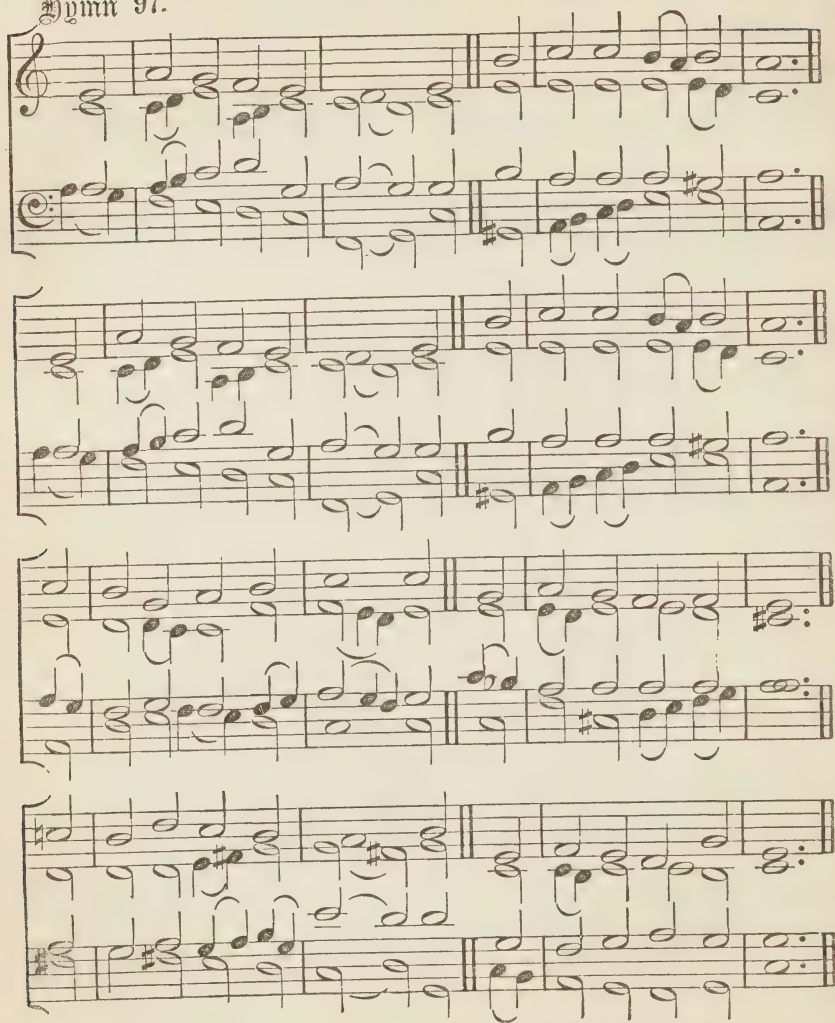 Hymn 97.